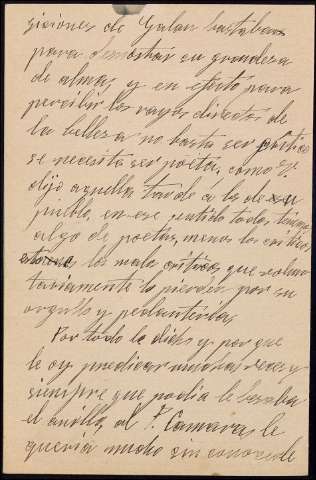 siciones de Galan bastaban
para demostrar su grandeza
de alma, y en efecto para
percibir los rayos directos de
la belleza no basta ser crítico
se necesita ser poeta, como V.
dijo aquella tarde á los de su
pueblo, en ese sentido todos tienen
algo de poetas, menos los críticos
los malos críticos, que volun
tariamente lo pierden por su
orgullo y pedantería.
Por todo lo dicho y por que
le oy predicar muchas veces y
siempre que podia le besaba
el anillo al P. Camara, le
queria mucho sin conocerle